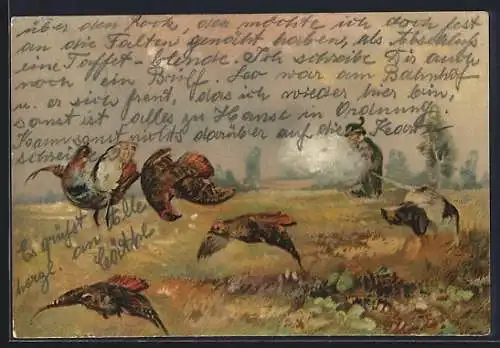 über den Rock, den möchte ich doch fest
an die Falten genäht haben, als Abschluß
eine Taffet-blende. Ich schreibe Dir auch
noch ein Brief. Leo war am Bahnhof
u. er sich freut, das ich wieder hier bin,
sonst ist alles zu Hause in Ordnung.
Kann sonst nichts darüber auf die Karte
schreibe
Es grüßt
herzl. am Elle